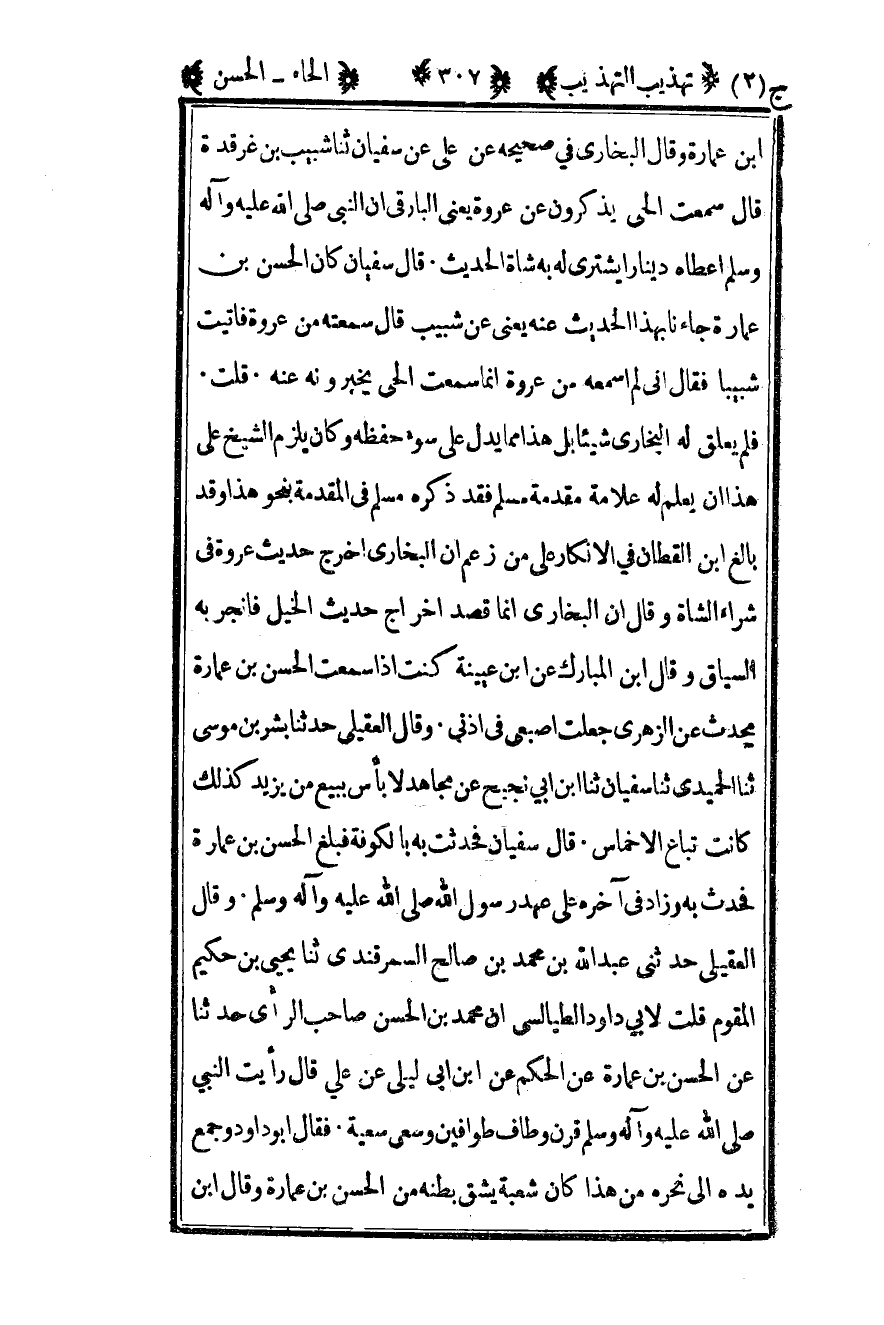 ج (٢) تهذيب التهذيب ٣٠٧ الحاء - الحسن
ابن عمارة وقال البخارى في صحيحه عن على عن سفيان ثنا شبيب بن غرقدة
قال سمعت الحى يذكرون عن عروة يعنى البارقى ان النبى صلى الله عليه وآله
وسلم اعطاه دينارا يشترى له به شاة الحديث ٠ قال سفيان كان الحسن بن
عمارة جاءنا بهذا الحديث عنه يعنى عن شبيب قال سمعته من عروة فاتيت
شبيبا فقال انى لم اسمعه من عروة انما سمعت الحى يخبرونه عنه ٠ قلت ٠
فلم يعلق له البخارى شيئا بل هذا مما يدل على سوء حفظه وكان يلزم الشيخ على
هذا ان يعلم له علامة مقدمة مسلم فقد ذكره مسلم فى المقدمة بنحو هذا وقد
بالغ ابن القطان في الانكار على من زعم ان البخارى اخرج حديث عروة فى
شراء الشاة وقال ان البخارى انما قصد اخراج حديث الخيل فانجر به
السياق وقال ابن المبارك عن ابن عيينة كنت اذا سمعت الحسن بن عمارة
يحدث عن الزهرى جعلت اصبعى فى اذنى ٠ وقال العقيلى حدثنا بشر بن موسى
ثنا الحميدى ثنا سفيان ثنا ابن ابي نجيح عن مجاهد لا بأس ببيع من يزيد كذلك
كانت تباغ الاخماس ٠ قال سفيان فحدثت به بالكوفة فبلغ الحسن بن عمارة
فحدث به وزاد فى آخره على عهد رسول الله صلى الله عليه وآله وسلم ٠ وقال
العقيلى حدثنى عبدالله بن محمد بن صالح السمرقندى ثنا يحيى بن حكيم
المقوم قلت لابي داود الطيالسى ان محمد بن الحسن صاحب الرأى حدثنا
عن الحسن بن عمارة عن الحكم عن ابن ابى ليلى عن علي قال رأيت النبي
صلى الله عليه وآله وسلم قرن وطاف طوافين وسعى سعية ٠ فقال ابو داود وجمع
يده الى نحره من هذا كان شعبة يشق بطنه من الحسن بن عمارة وقال ابن